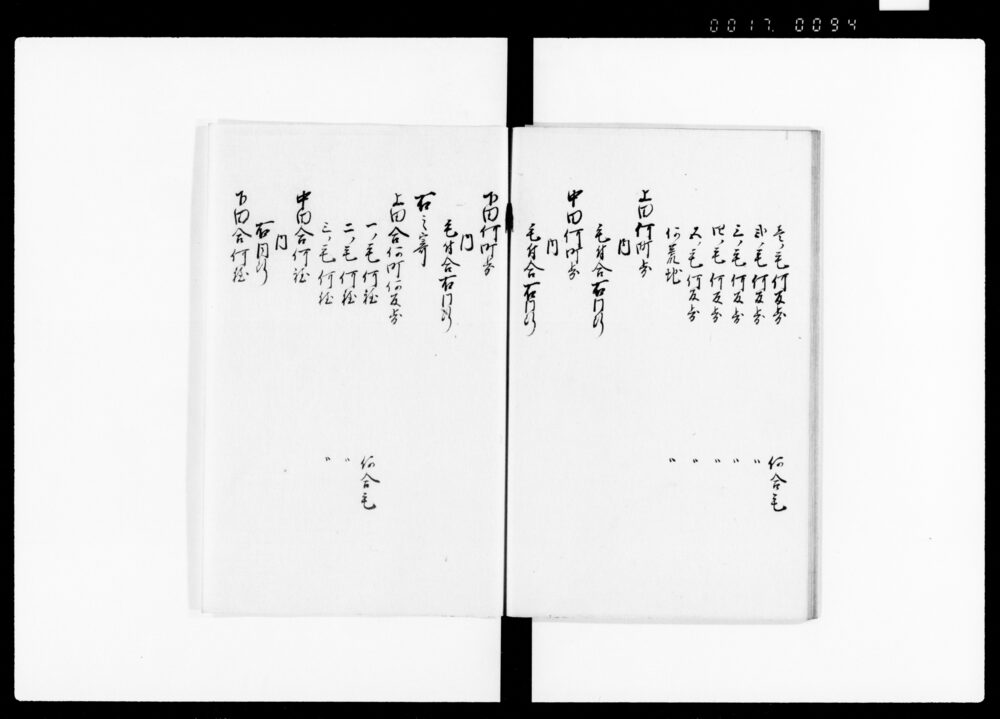 0017.0094
壱ノ毛何反歩 何合毛
弐ノ毛何反歩 〃
三ノ毛何反歩 〃
四ノ毛何反歩 〃
五ノ毛何反歩 〃
何荒地 〃
上田何町歩
内
毛付合右同断
中田何町歩
内
毛付合右同断
下田何町歩
内
毛付合右同断
右之寄
上田合何町何反歩
一ノ毛何程 何合毛
二ノ毛何程 〃
三ノ毛何程 〃
中田合何程
内
右同断
下田合何程